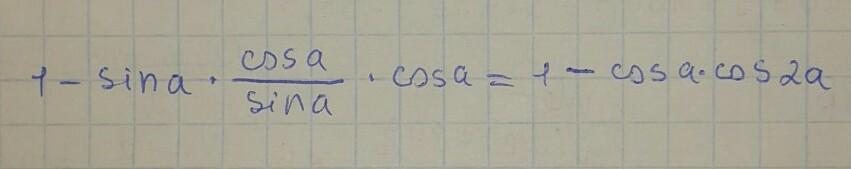 1 - sina · \frac{cosa}{sina} · cosa = 1 - cosa·cos2a